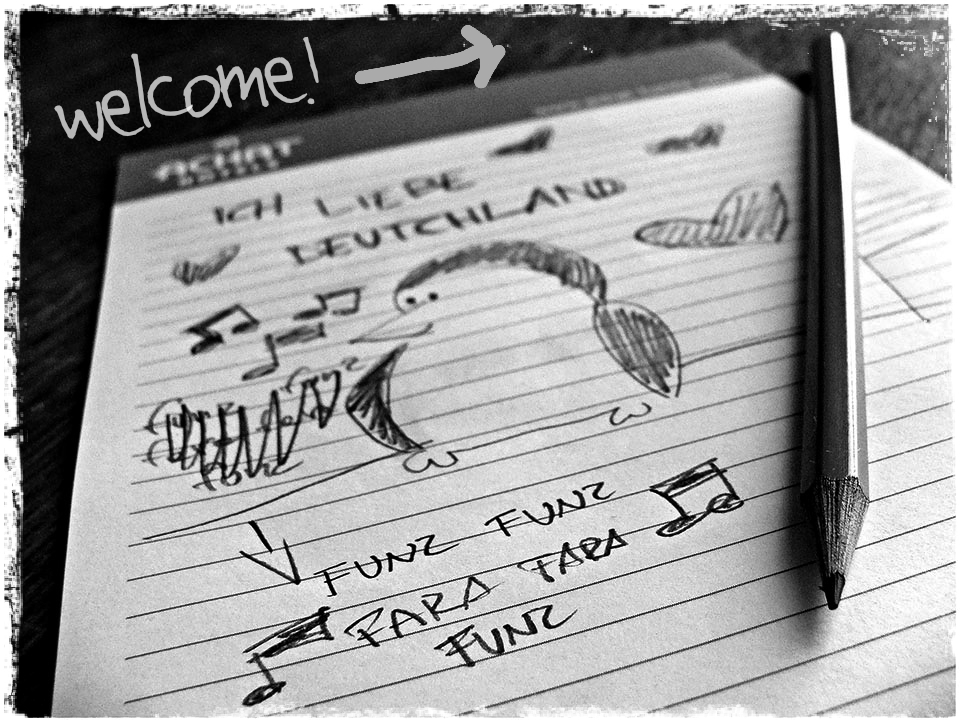 welcome!
ACHAT
ICH LIEBE
DEUTCHLAND
FUNZ FUNZ
FARA FARA
FUNZ